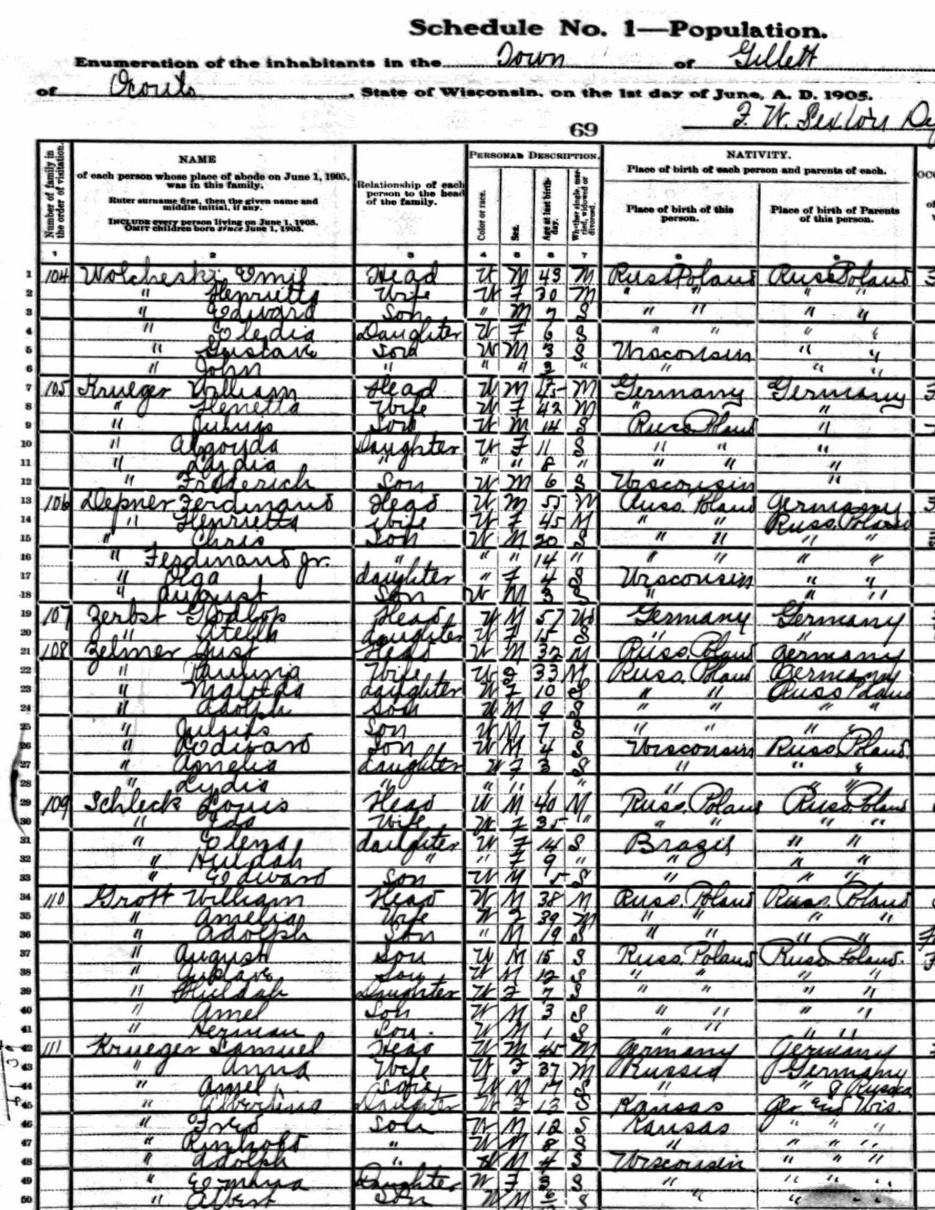 Schedule No. 1—Population.
Enumeration of the inhabitants in the Town of Gillett
of Oconto, State of Wisconsin, on the 1st day of June, A. D. 1905.
F. W. Sexton's
69
Number of family in the order of visitation.
NAME
of each person whose place of abode on June 1, 1905, was in this family.
Enter surname first, then the given name and middle initial, if any.
INCLUDE every person living on June 1, 1905.
OMIT children born since June 1, 1905.
Relationship of each person to the head of the family.
PERSONAL DESCRIPTION.
Color or race.
Sex.
Age at last birthday.
Whether single, married, widowed or divorced.
NATIVITY.
Place of birth of each person and parents of each.
Place of birth of this person.
Place of birth of Parents of this person.
1 2 3 4 5 6 7 8 9
1 104 Wolcheski Emil Head W M 43 M Russ Poland Russ Poland
2 " Henrietta Wife W F 30 M " " " "
3 " Edward Son " M 7 S " " " "
4 " Daughter W F 6 S " " " "
5 " Gustave Son W M 3 S Wisconsin " "
6 " John " " " 2 " " " "
7 105 Krueger William Head W M 45 M Germany Germany
8 " Wife W F 42 M " "
9 " Julius Son W M 14 S Russ. Poland "
10 " Daughter W F 11 S " " "
11 " " " " 8 " " " "
12 " Frederich Son W M 6 S Wisconsin "
13 106 Depner Ferdinand Head W M 55 M Russ. Poland Germany
14 " Henrietta Wife W F 45 M " " Russ. Poland
15 " Chris Son W M 20 S " " " "
16 " Ferdinand Jr. " " " 14 " " " " "
17 " Olga daughter " F 4 S Wisconsin " "
18 " August Son W M 3 S " " "
19 107 Zerbst Head W M 57 Wd Germany Germany
20 " daughter W F 15 S " "
21 108 Zelmer Gust Head W M 32 M Russ. Poland Germany
22 " Wife W F 33 M Russ. Poland Germany
23 " daughter W F 10 S " " Russ Poland
24 " Adolph Son W M 9 S " " " "
25 " Julius Son W M 7 S " " " "
26 " Edward Son W M 4 S Wisconsin Russ. Poland
27 " Amelia daughter W F 3 S " " "
28 " Lydia " " " 1 " " " "
29 109 Schleck Louis Head W M 40 M Russ. Poland Russ. Poland
30 " Ida Wife W F 35 " " " " "
31 " Elena daughter W F 14 S Brazil " "
32 " Huldah " " F 9 " " " "
33 " Edward Son W M 5 S " " "
34 110 Grott William Head W M 38 M Russ. Poland Russ. Poland
35 " Amelia Wife W F 39 M " " " "
36 " Adolph Son " M 19 S " " " "
37 " August Son W M 15 S Russ. Poland Russ. Poland.
38 " Gustave Son W M 12 S " " " "
39 " Huldah Daughter W F 7 S " " " "
40 " Amel Son W M 3 S " " " "
41 " Herman Son. W M 1 S " " " "
42 111 Krueger Samuel Head W M 45 M Germany Germany
43 " Anna Wife W F 37 M Russia Germany
44 " Amel Son W M 17 S " " & Russia
45 " Albertina Daughter W F 13 S Kansas Ger. and Wis.
46 " Fred Son W M 12 S Kansas " " "
47 " Rinholt " W M 8 S " " " "
48 " Adolph " W M 4 S Wisconsin " " "
49 " Daughter W F 3 S " " "
50 " Albert Son W M S " " "